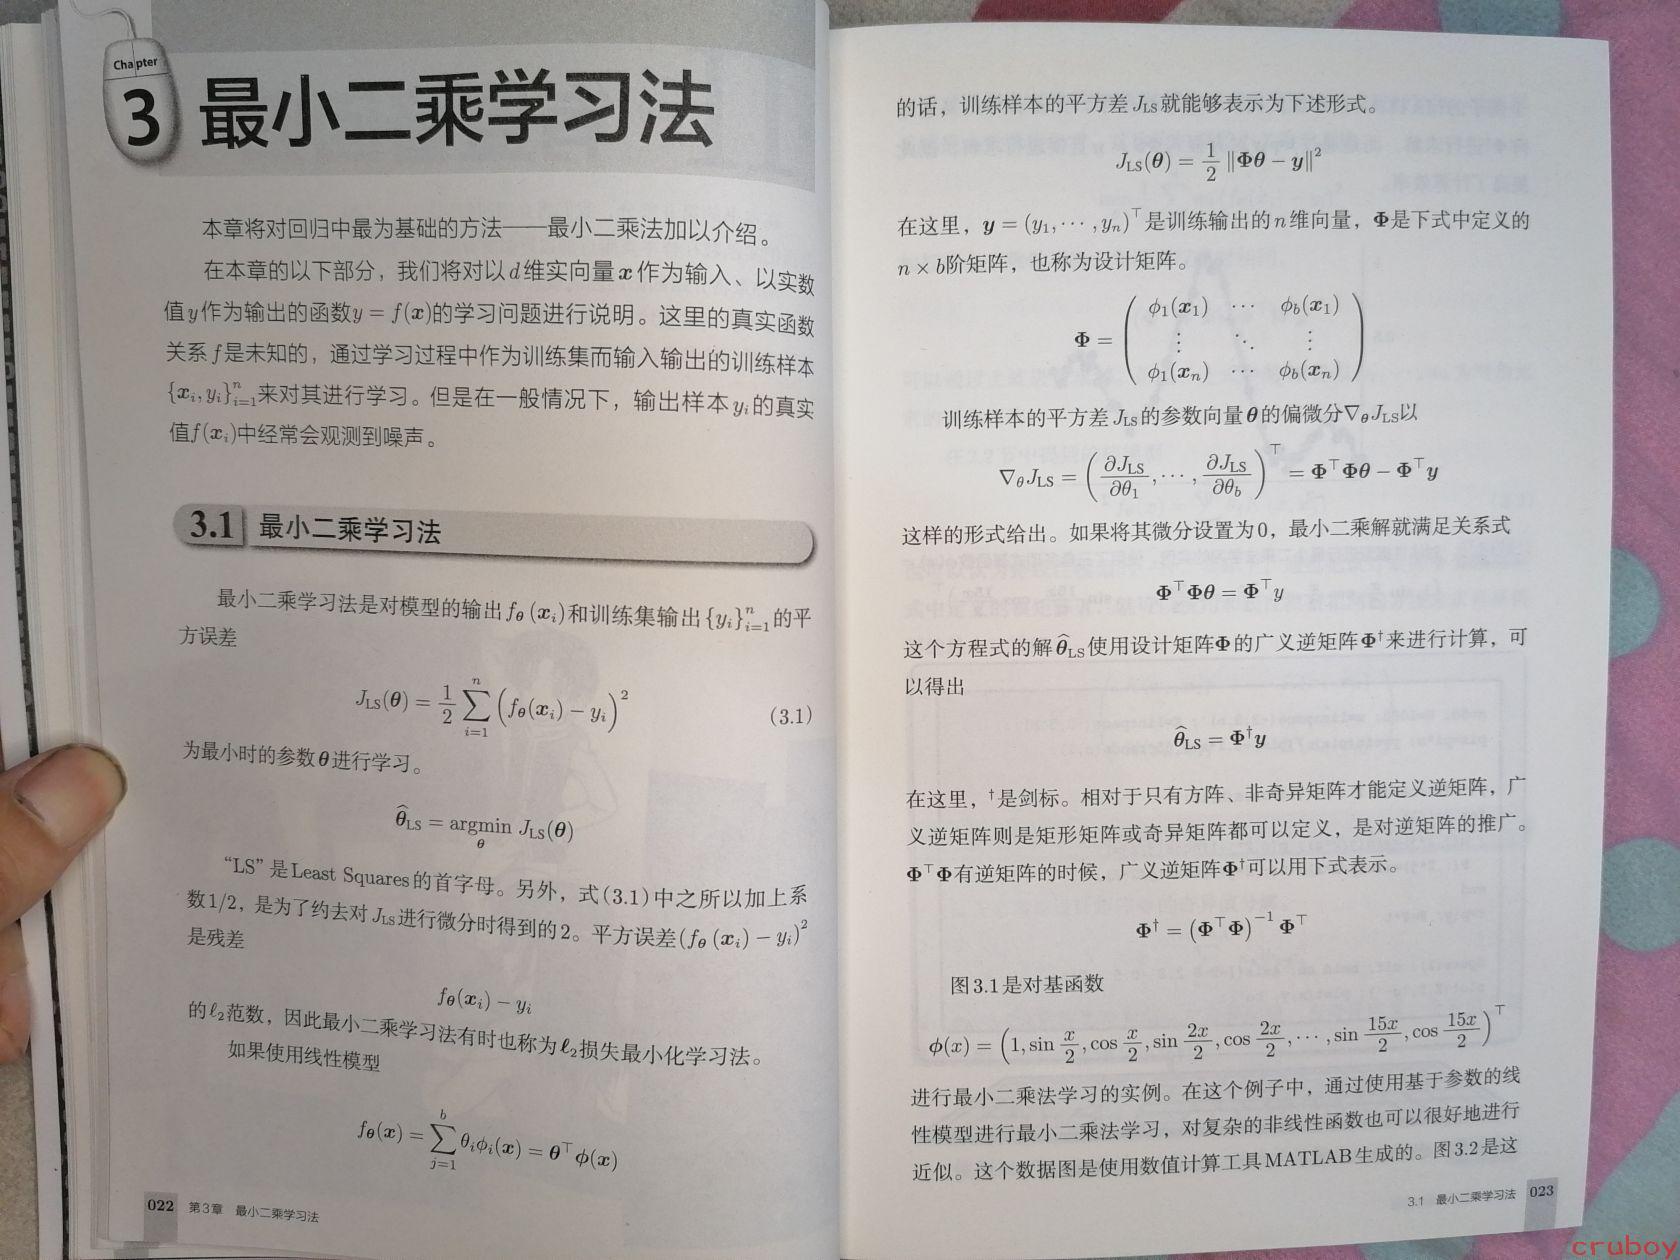 Chapter
3 最小二乘学习法
本章将对回归中最为基础的方法——最小二乘法加以介绍。
在本章的以下部分，我们将对以d维实向量x作为输入、以实数
值y作为输出的函数y = f(x)的学习问题进行说明。这里的真实函数
关系f是未知的，通过学习过程中作为训练集而输入输出的训练样本
{xᵢ, yᵢ}ⁿᵢ₌₁来对其进行学习。但是在一般情况下，输出样本yᵢ的真实
值f(xᵢ)中经常会观测到噪声。
3.1 最小二乘学习法
最小二乘学习法是对模型的输出f_θ(xᵢ)和训练集输出{yᵢ}ⁿᵢ₌₁的平
方误差
J_LS(θ) = 1/2 ∑ⁿᵢ₌₁ (f_θ(xᵢ) − yᵢ)² (3.1)
为最小时的参数θ进行学习。
θ̂_LS = argmin_θ J_LS(θ)
“LS”是Least Squares的首字母。另外，式(3.1)中之所以加上系
数1/2，是为了约去对J_LS进行微分时得到的2。平方误差(f_θ(xᵢ) − yᵢ)²
是残差
f_θ(xᵢ) − yᵢ
的ℓ₂范数，因此最小二乘学习法有时也称为ℓ₂损失最小化学习法。
如果使用线性模型
f_θ(x) = ∑ᵇⱼ₌₁ θᵢϕᵢ(x) = θ^⊤ϕ(x)
022 第3章 最小二乘学习法
的话，训练样本的平方差J_LS就能够表示为下述形式。
J_LS(θ) = 1/2 ‖Φθ − y‖²
在这里，y = (y₁, ⋯ , yₙ)^⊤是训练输出的n维向量，Φ是下式中定义的
n × b阶矩阵，也称为设计矩阵。
ϕ₁(x₁) ⋯ ϕ_b(x₁)
Φ = ( ⋮ ⋱ ⋮ )
ϕ₁(xₙ) ⋯ ϕ_b(xₙ)
训练样本的平方差J_LS的参数向量θ的偏微分∇_θJ_LS以
∇_θJ_LS = (∂J_LS/∂θ₁, ⋯ , ∂J_LS/∂θ_b)^⊤ = Φ^⊤Φθ − Φ^⊤y
这样的形式给出。如果将其微分设置为0，最小二乘解就满足关系式
Φ^⊤Φθ = Φ^⊤y
这个方程式的解θ̂_LS使用设计矩阵Φ的广义逆矩阵Φ^†来进行计算，可
以得出
θ̂_LS = Φ^†y
在这里，^†是剑标。相对于只有方阵、非奇异矩阵才能定义逆矩阵，广
义逆矩阵则是矩形矩阵或奇异矩阵都可以定义，是对逆矩阵的推广。
Φ^⊤Φ有逆矩阵的时候，广义逆矩阵Φ^†可以用下式表示。
Φ^† = (Φ^⊤Φ)⁻¹Φ^⊤
图3.1是对基函数
ϕ(x) = (1, sin x/2, cos x/2, sin 2x/2, cos 2x/2, ⋯ , sin 15x/2, cos 15x/2)^⊤
进行最小二乘法学习的实例。在这个例子中，通过使用基于参数的线
性模型进行最小二乘法学习，对复杂的非线性函数也可以很好地进行
近似。这个数据图是使用数值计算工具MATLAB生成的。图3.2是这
3.1 最小二乘学习法 023
cruboy